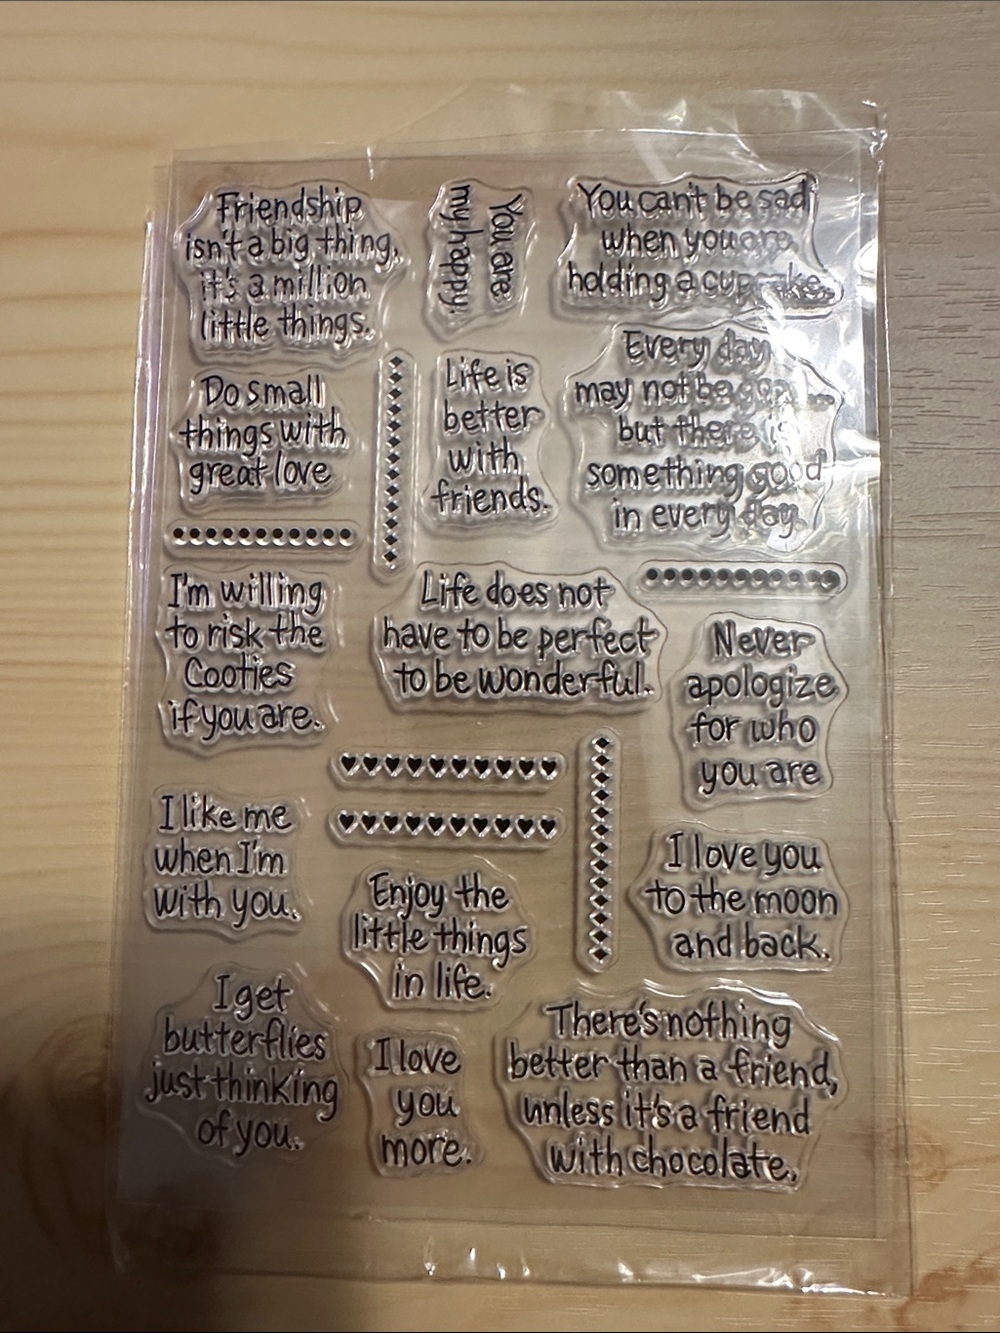 Friendship
isn't a big thing,
it's a million
little things.
You are
my happy.
You can't be sad
when you are
holding a cupcake.
Do small
things with
great love
Life is
better
with
friends.
Every day
may not be good...
but there is
something good
in every day.
I'm willing
to risk the
Cooties
if you are.
Life does not
have to be perfect
to be wonderful.
Never
apologize
for who
you are
I like me
when I'm
with you.
Enjoy the
little things
in life.
I love you
to the moon
and back.
I get
butterflies
just thinking
of you.
I love
you
more.
There's nothing
better than a friend,
unless it's a friend
with chocolate.